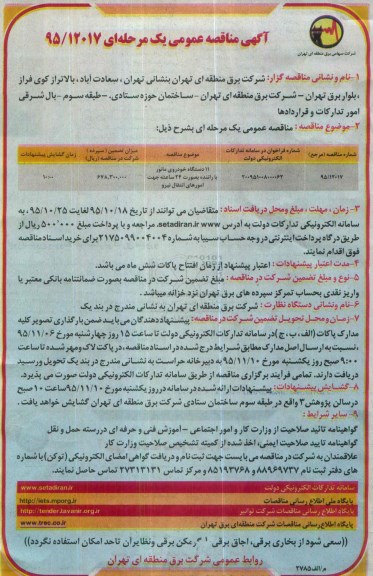 شرکت سهامی برق منطقه ای تهران
آگهی مناقصه عمومی یک مرحله‌ای ۹۵/۱۲۰۱۷
۱-نام و نشانی مناقصه گزار: شرکت برق منطقه ای تهران بنشانی تهران، سعادت آباد، بالاتراز کوی فراز
، بلوار برق تهران – شرکت برق منطقه ای تهران - ساختمان حوزه ستادی. -طبقه سوم -بال شرقی
امور تدارکات و قراردادها
۲-موضوع مناقصه : مناقصه عمومی یک مرحله ای بشرح ذیل:
شماره مناقصه (مرجع)
شماره فراخوان در سامانه تدارکات الکترونیکی دولت
موضوع مناقصه
میزان تضمین (سپرده) شرکت در مناقصه (ریال)
زمان گشایش پیشنهادات
۹۵/۱۲۰۱۷
۲۰۰۹۵۱۰۰۸۰۰۰۰۶۲
۱۱ دستگاه خودروی مأتور با راننده بصورت ۲۴ ساعته جهت امورهای انتقال نیرو
۶۷۸,۳۰۰,۰۰۰
۱۰:۰۰
۳- زمان ، مهلت ، مبلغ ومحل دریافت اسناد : متقاضیان می توانند از تاریخ ۹۵/۱۰/۱۸ لغایت ۹۵/۱۰/۲۵ به
سامانه الکترونیکی تدارکات دولت به آدرس www.setadiran.ir مراجعه و با پرداخت مبلغ ۵۰۰,۰۰۰ ریال از
طریق درگاه پرداخت اینترنتی در وجه حساب سیبا به شماره ۲۱۷۵۰۹۹۰۰۴۰۰۴ برای خرید اسناد مناقصه
فوق اقدام نمایند.
۴-مدت اعتبار پیشنهادات: اعتبار پیشنهاد از زمان افتتاح پاکات شش ماه می باشد.
۵- نوع و مبلغ تضمین شرکت در مناقصه : مبلغ تضمین شرکت در مناقصه بصورت ضمانتنامه بانکی معتبر یا
واریز نقدی بحساب تمرکز سپرده های برق تهران نزد خزانه میباشد .
۶-نام ونشانی دستگاه نظارت : شرکت برق منطقه ای تهران به نشانی مندرج در بند یک
۷-زمان ومحل تحویل تضمین شرکت در مناقصه: پیشنهاددهندگان می بایست ضمن بارگذاری تصویر کلیه
مدارک پاکات (الف ، ب ، ج) در سامانه تدارکات الکترونیکی دولت تا ساعت ۱۵ روز چهارشنبه مورخ ۹۵/۱۱/۰۶
، نسبت به ارسال اصل مدارک مطابق شرایط درج شده در اسناد مناقصه ، در پاکت لاک ومهر شده تا ساعت
۹:۰۰ صبح روز یکشنبه مورخ ۹۵/۱۱/۱۰ به دبیرخانه حراست به نشانی مندرج در بند یک تحویل و رسید
دریافت دارند. تمامی فرآیند برگزاری مناقصه از طریق سامانه تدارکات الکترونیکی دولت صورت می پذیرد.
۸-گشایش پیشنهادات: پیشنهادات ارائه شده در سامانه در روز یکشنبه مورخ ۹۵/۱۱/۱۰ ساعت ۱۰ صبح
در سالن پژوهش ۳ واقع در طبقه سوم ساختمان ستادی شرکت برق منطقه ای تهران گشایش خواهد یافت .
۸- سایر شرایط :
گواهینامه تائید صلاحیت از وزارت کار و امور اجتماعی -آموزش فنی و حرفه ای در رسته حمل و نقل
گواهینامه تایید صلاحیت ایمنی، اخذ شده از کمیته تشخیص صلاحیت وزارت کار
علاقمندان به شرکت در مناقصه می بایست جهت ثبت نام و دریافت گواهی امضای الکترونیکی (توکن) با شماره
های دفتر ثبت نام ۸۸۹۶۹۷۳۷ و ۸۵۱۹۳۷۶۸ و مرکز تماس ۲۷۳۱۳۱۳۱ تماس حاصل نمایند.
سامانه تدارکات الکترونیکی دولت www.setadiran.ir
پایگاه ملی اطلاع رسانی مناقصات http://iets.mporg.ir
پایگاه اطلاع رسانی مناقصات شرکت توانیر http://tender.tavanir.org.ir
پایگاه اطلاع رسانی مناقصات شرکت برق منطقه‌ای تهران www.trec.co.ir
((سعی شود از بخاری برقی، اجاق برقی، گرمکن برقی ونظایرآن تاحد امکان استفاده نگردد))
روابط عمومی شرکت برق منطقه ای تهران
م/الف ۳۷۸۵